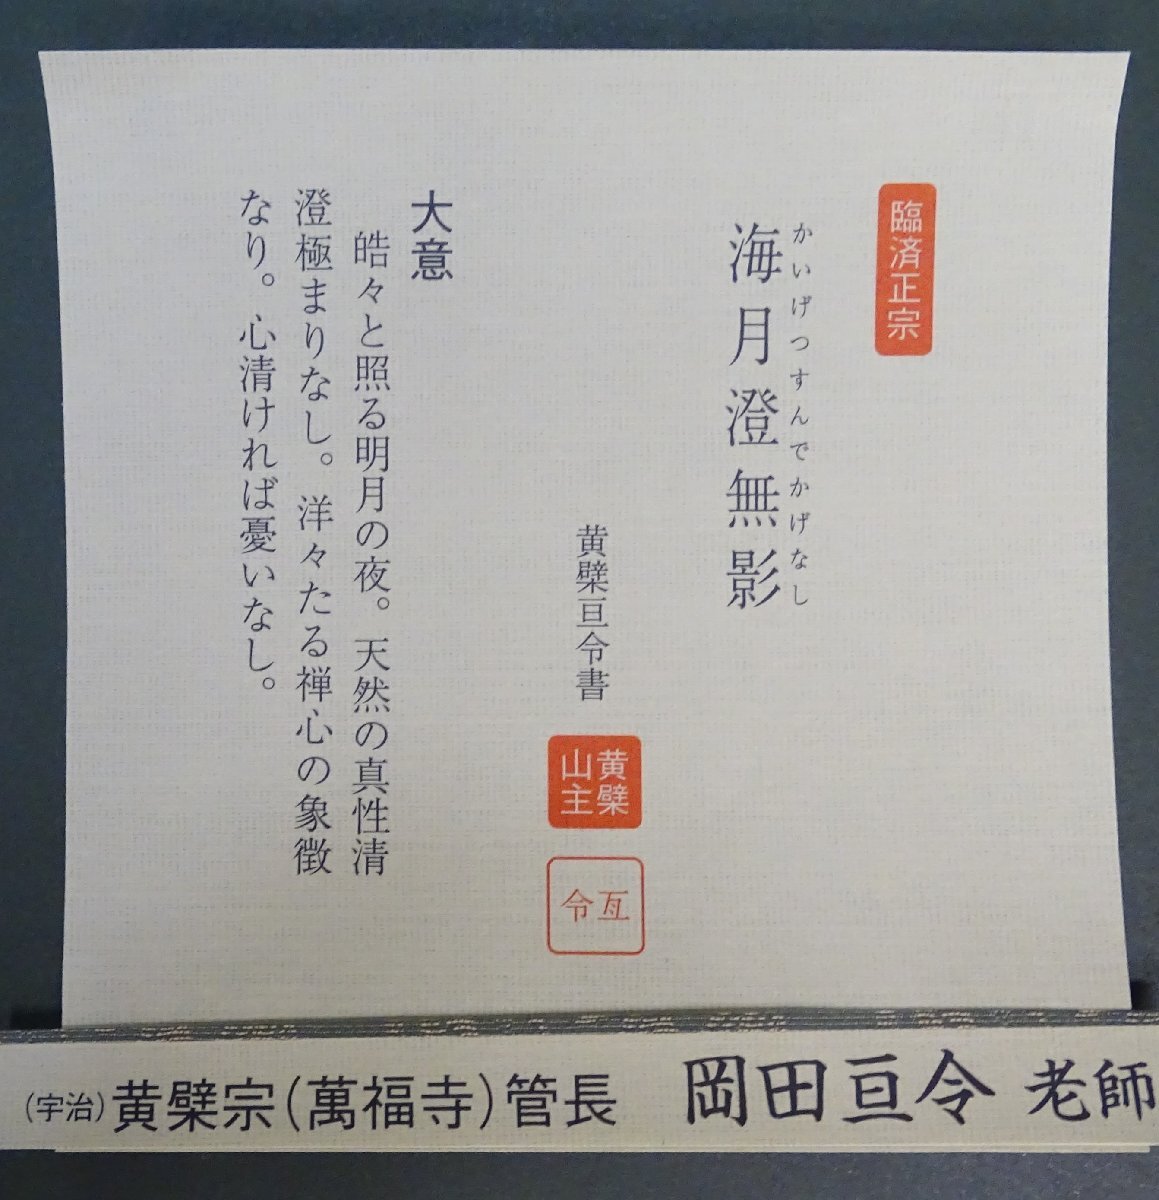 臨済正宗
かいげつすんでかげなし
海月澄無影
黄檗亘令書
黄檗
山主
亙
令
大意
皓々と照る明月の夜。天然の真性清
澄極まりなし。洋々たる禅心の象徴
なり。心清ければ憂いなし。
(宇治)黄檗宗(萬福寺)管長 岡田亘令 老師